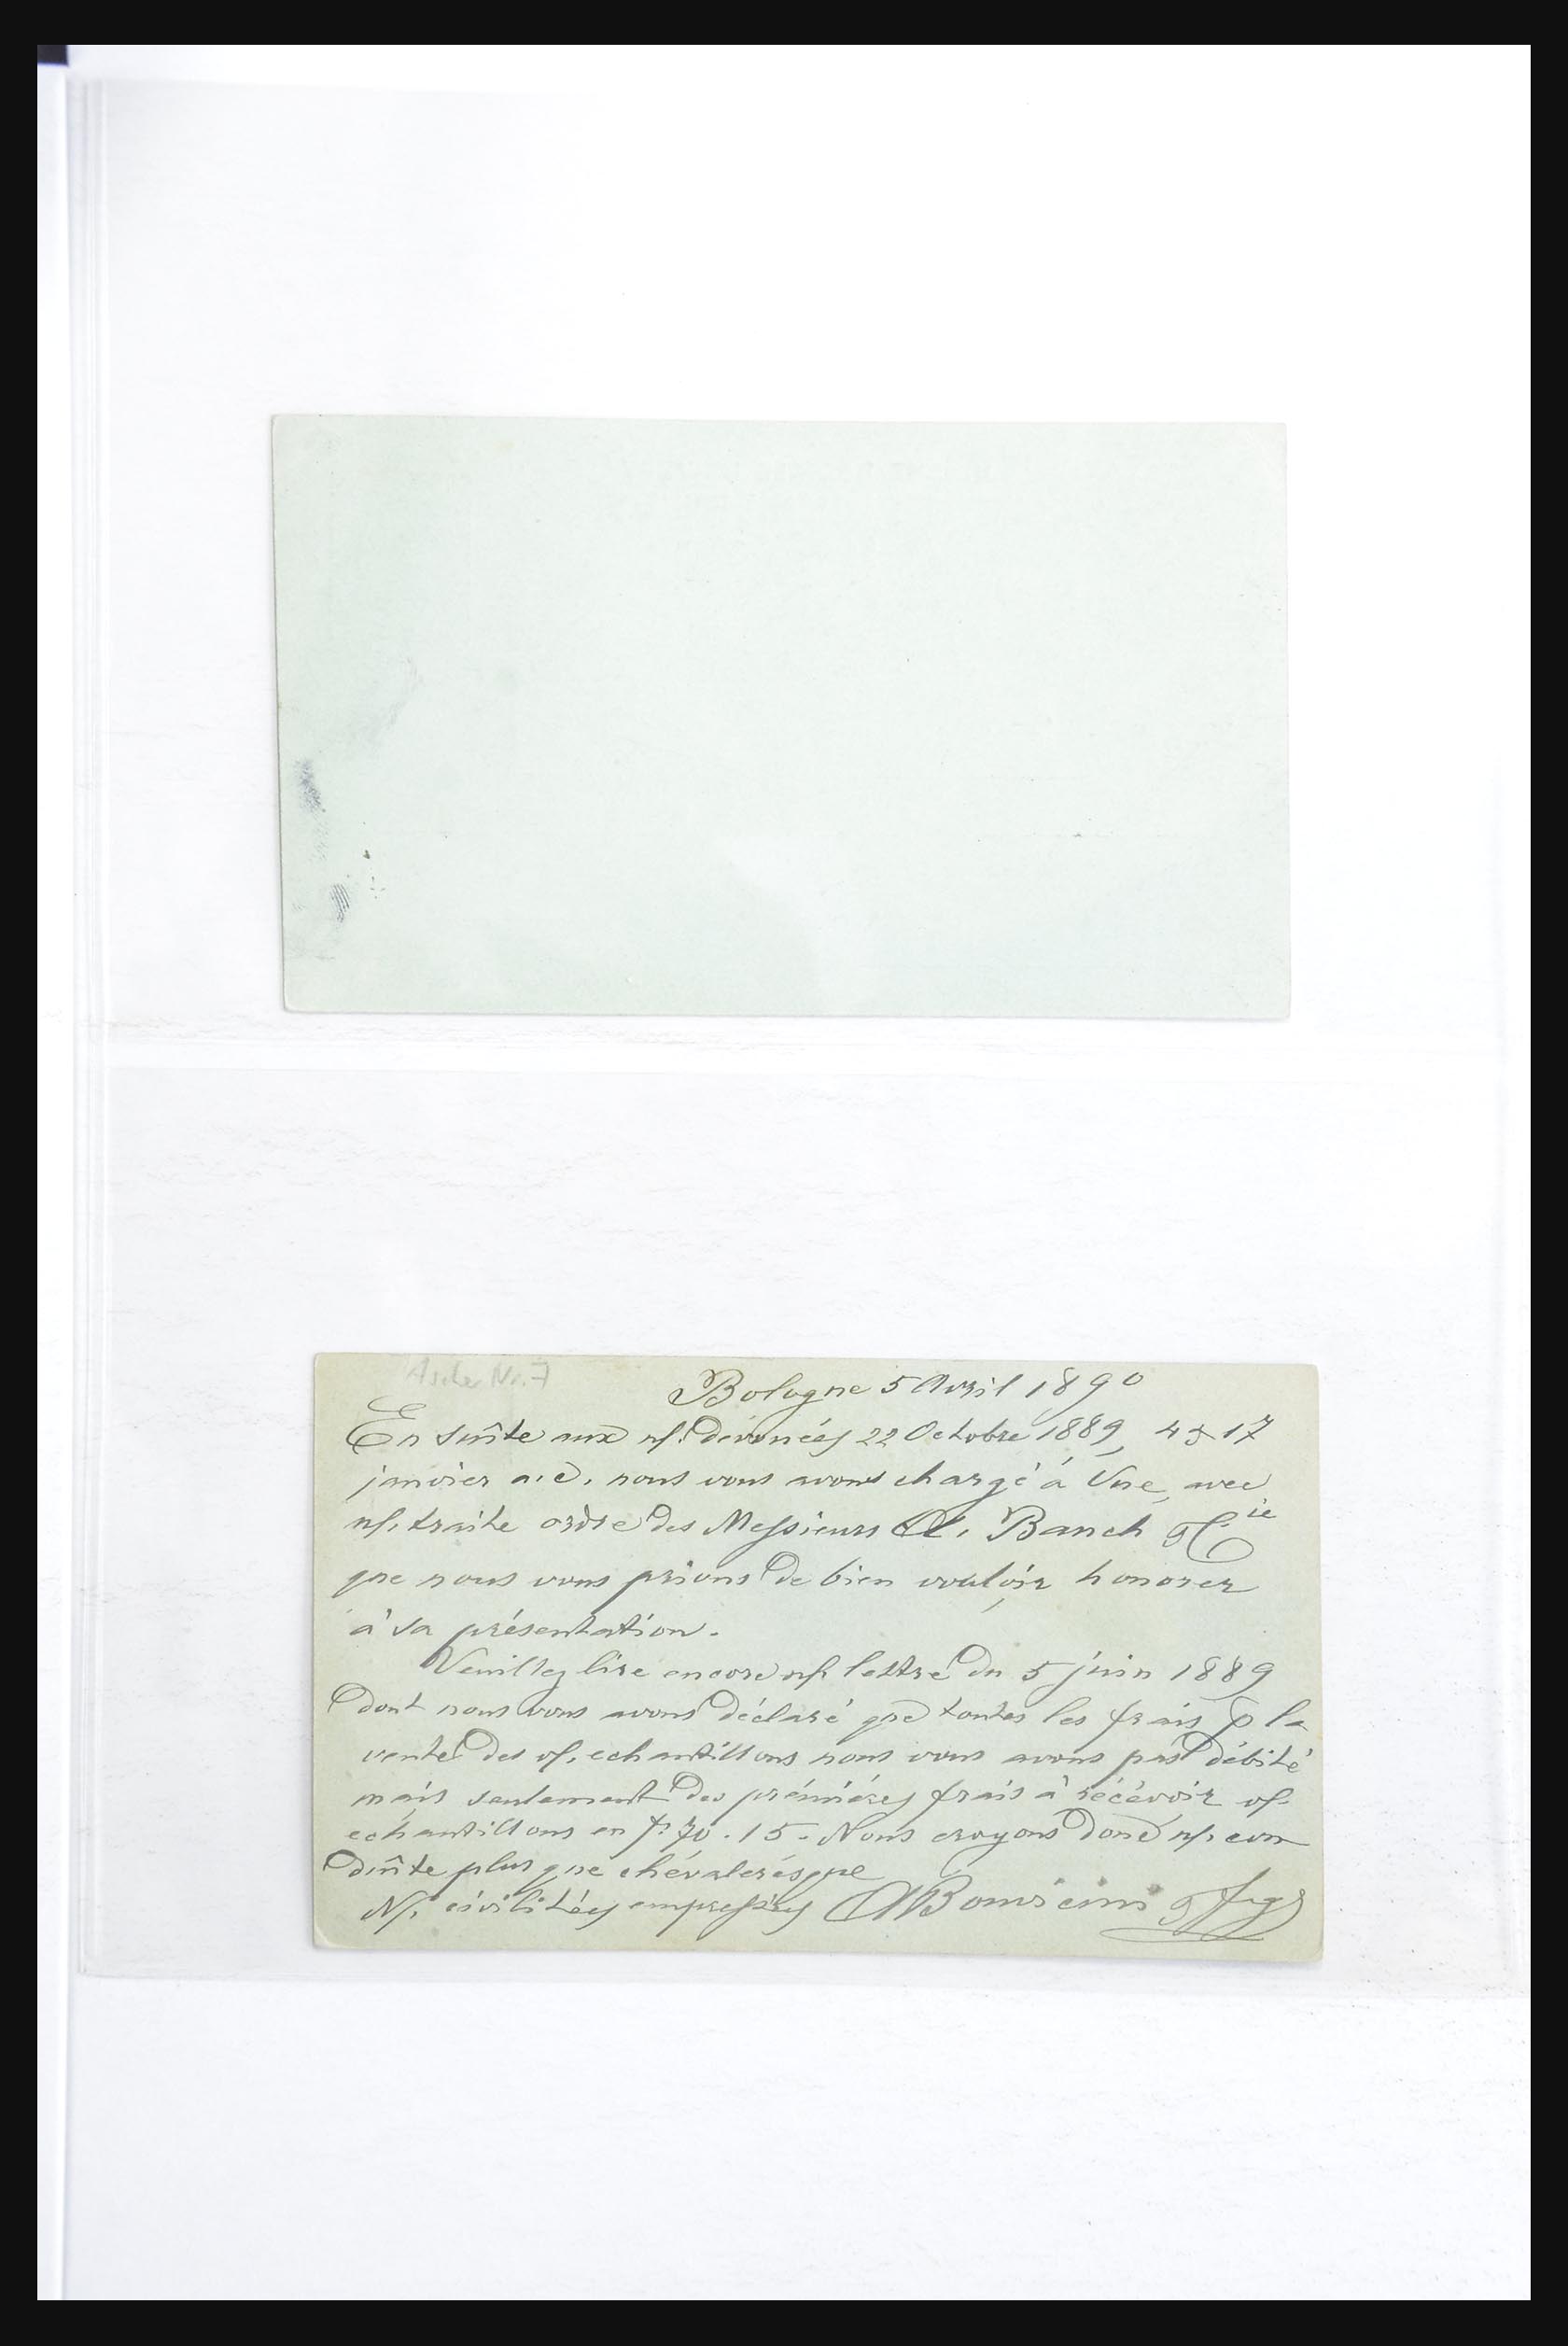 Ascher Nr. 7
Bologne 5 Avril 1890
En suîte aux n/. dévouées 22 Octobre 1889, 4 & 17
janvier a.c. nous vous avons chargé à Vue, avec
n/. traite ordre des Messieurs A. Banch & Cie
que nous vous prions de bien vouloir honorer
à sa présentation.
Veuillez lire encore n/. lettre du 5 juin 1889
dont nous vous avons déclaré que toutes les frais p la
vente des v/. echantillons nous vous avons pas débité
mais seulement des prémiéres frais à récévoir v/.
echantillons en fr 70.15. Nous croyons donc n/. con
duîte plus que chévaleresque
N/. civilitées empressées Bonvicini & Figs